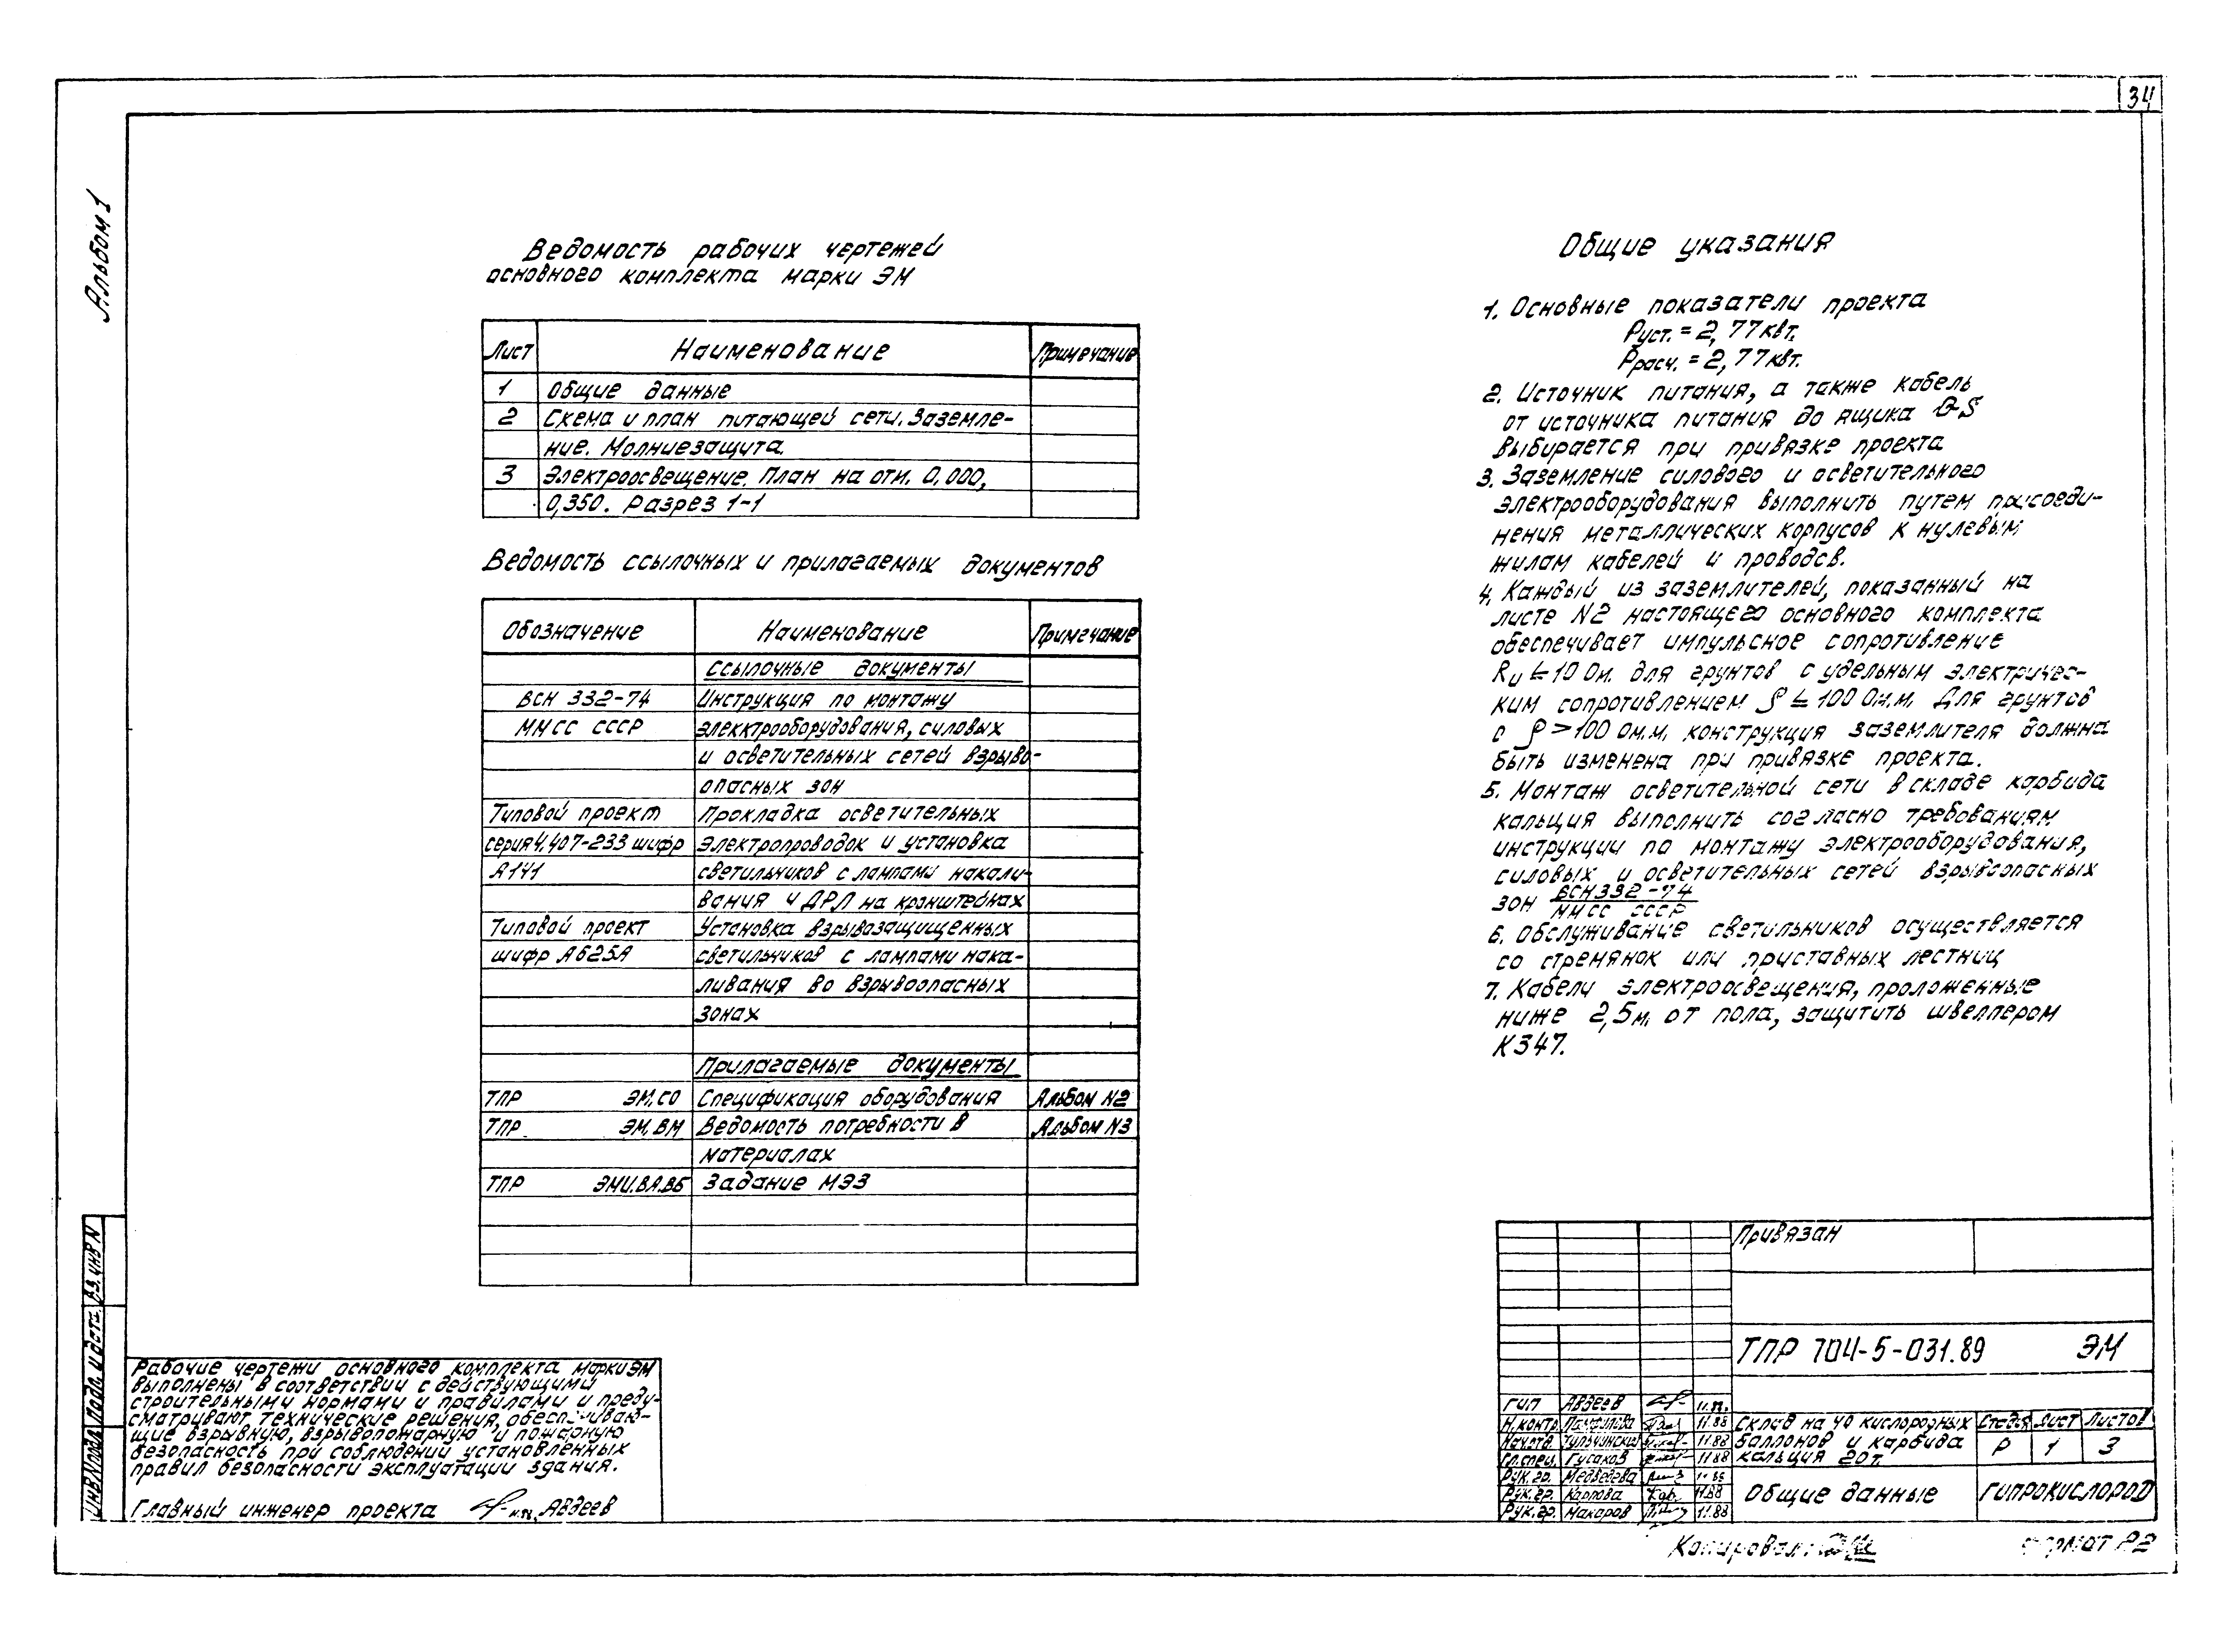 34
Альбом 1
Ведомость рабочих чертежей
основного комплекта марки ЭМ
Лист Наименование Примечание
1 Общие данные
2 Схема и план питающей сети. Заземле-
ние. Молниезащита.
3 Электроосвещение. План на отм. 0,000,
0,350. Разрез 1-1
Ведомость ссылочных и прилагаемых документов
Обозначение Наименование Примечание
Ссылочные документы
ВСН 332-74 Инструкция по монтажу
ММСС СССР электрооборудования, силовых
и осветительных сетей взрыво-
опасных зон
Типовой проект Прокладка осветительных
серия 4.407-233 шифр электропроводок и установка
А141 светильников с лампами накали-
вания и ДРЛ на кронштейнах
Типовой проект Установка взрывозащищенных
шифр А625А светильников с лампами нака-
ливания во взрывоопасных
зонах
Прилагаемые документы
ТПР ЭМ.СО Спецификация оборудования Альбом N2
ТПР ЭМ.ВМ Ведомость потребности в Альбом N3
материалах
ТПР ЭМИ.ВА.ВБ Задание МЭЗ
Общие указания
1. Основные показатели проекта
Руст. = 2,77 квт.
Ррасч. = 2,77 квт.
2. Источник питания, а также кабель
от источника питания до ящика QS
выбирается при привязке проекта
3. Заземление силового и осветительного
электрооборудования выполнить путем присоеди-
нения металлических корпусов к нулевым
жилам кабелей и проводов.
4. Каждый из заземлителей, показанный на
листе N2 настоящего основного комплекта
обеспечивает импульсное сопротивление
Rи ≤ 10 Ом. для грунтов с удельным электричес-
ким сопротивлением ρ ≤ 100 Ом.м. Для грунтов
с ρ > 100 Ом.м. конструкция заземлителя должна
быть изменена при привязке проекта.
5. Монтаж осветительной сети в складе карбида
кальция выполнить согласно требованиям
инструкции по монтажу электрооборудования,
силовых и осветительных сетей взрывоопасных
зон ВСН 332-74
ММСС СССР
6. Обслуживание светильников осуществляется
со стремянок или приставных лестниц
7. Кабели электроосвещения, проложенные
ниже 2,5м. от пола, защитить швеллером
К347.
Рабочие чертежи основного комплекта марки ЭМ
выполнены в соответствии с действующими
строительными нормами и правилами и преду-
сматривают технические решения, обеспечиваю-
щие взрывную, взрывопожарную и пожарную
безопасность при соблюдении установленных
правил безопасности эксплуатации здания.
Главный инженер проекта Авдеев
Инв.N подл. Подп. и дата. Вз. инв N
Привязан
ТПР 704-5-031.89 ЭМ
ГИП Авдеев
Н.контр. 11.88
Нач.отд. Тульчинский 11.88
Гл.спец. Гусаков 11.88
Рук.гр. Медведева
Рук.гр. Карпова 11.88
Рук.гр. Макаров 11.88
Склад на 40 кислородных
баллонов и карбида
кальция 20т.
Стадия Лист Листов
Р 1 3
Общие данные
ГИПРОКИСЛОРОД
Копировал:
формат А2